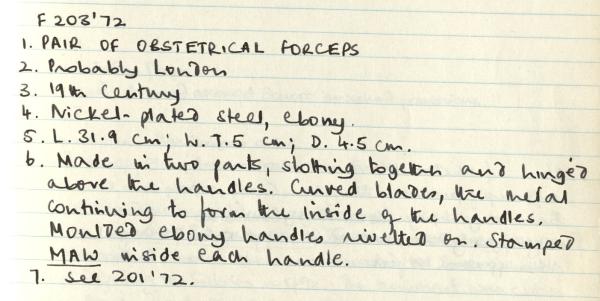 F 203'72
1. PAIR OF OBSTETRICAL FORCEPS
2. Probably London
3. 19th Century
4. Nickel-plated steel, ebony.
5. L. 31.9 cm; W. 7.5 cm; D. 4.5 cm.
6. Made in two parts, slotting together and hinged
above the handles. Curved blades, the metal
continuing to form the inside of the handles.
Moulded ebony handles rivetted on. Stamped
MAW inside each handle.
7. See 201'72.